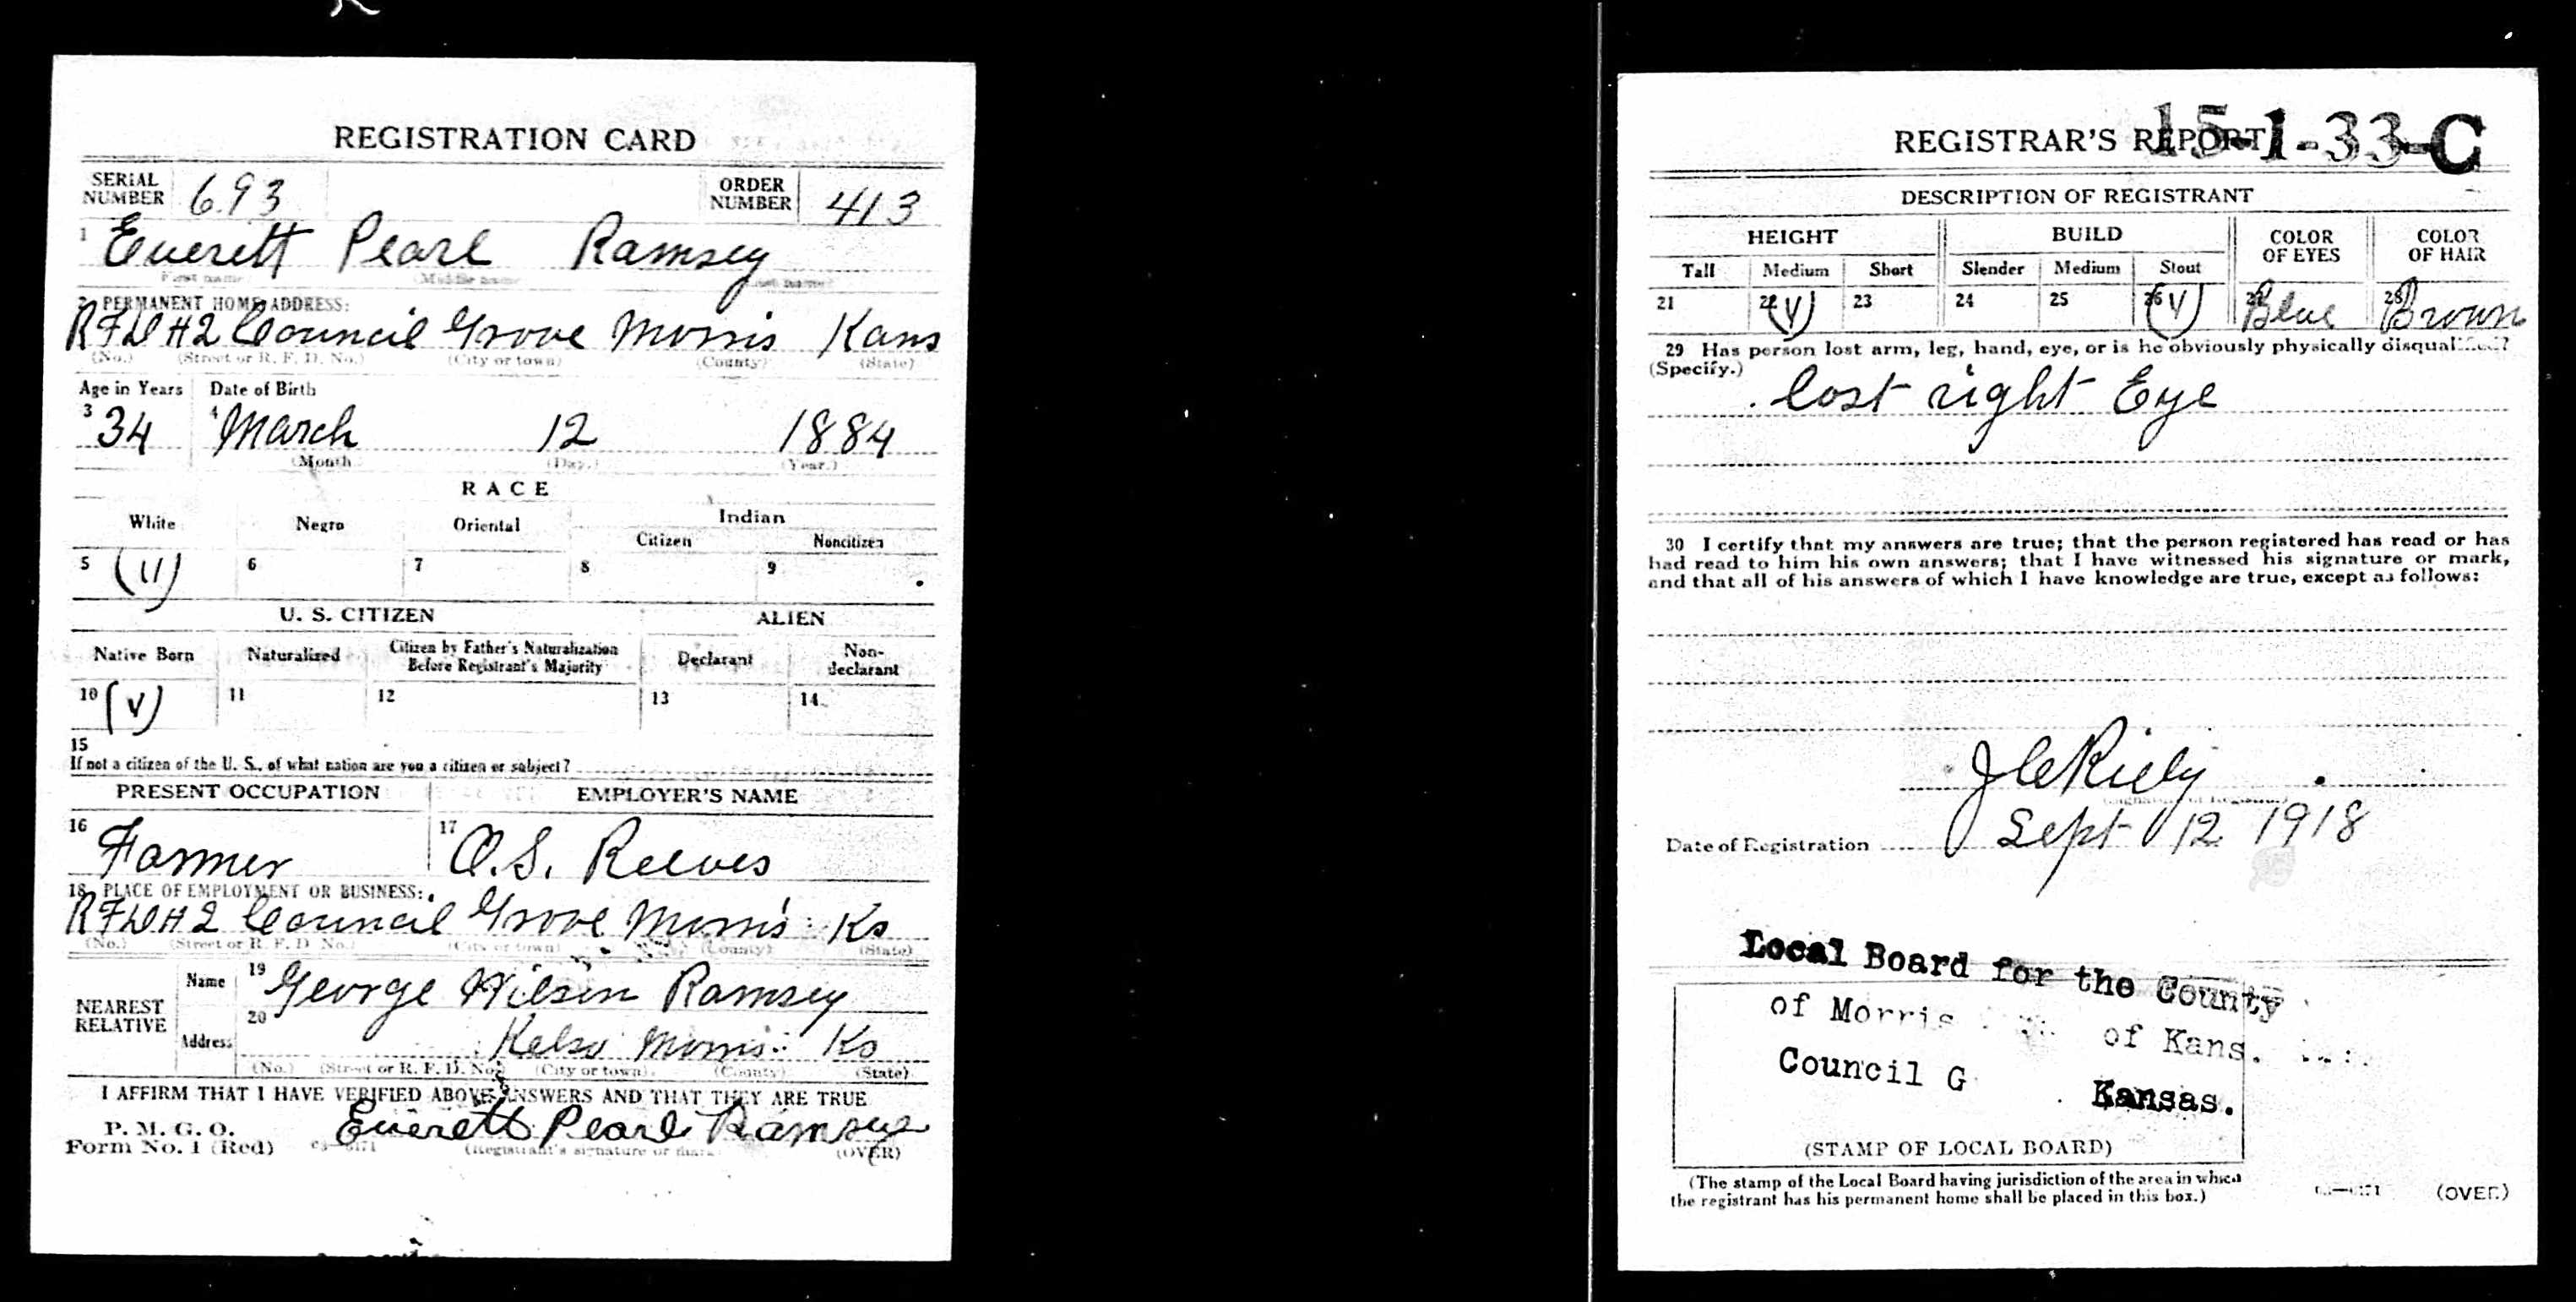 REGISTRATION CARD
SERIAL NUMBER 693 ORDER NUMBER 413
1 Everett Pearl Ramsey
First name Middle name Last name
2 PERMANENT HOME ADDRESS:
RFD #2 Council Grove Morris Kans
(No.) (Street or R. F. D. No.) (City or town) (County) (State)
Age in Years Date of Birth
3 34 4 March 12 1884
(Month) (Day.) (Year.)
RACE
White Negro Oriental Indian
Citizen Noncitizen
5 (V) 6 7 8 9
U. S. CITIZEN ALIEN
Native Born Naturalized Citizen by Father's Naturalization Before Registrant's Majority Declarant Non-declarant
10 (V) 11 12 13 14
15
If not a citizen of the U. S., of what nation are you a citizen or subject?
PRESENT OCCUPATION EMPLOYER'S NAME
16 Farmer 17 O.S. Reeves
18 PLACE OF EMPLOYMENT OR BUSINESS:
RFD #2 Council Grove Morris Ks
(No.) (Street or R. F. D. No.) (City or town) (County) (State)
NEAREST RELATIVE Name 19 George Wilson Ramsey
Address 20 Kelso Morris Ks
(No.) (Street or R. F. D. No.) (City or town) (County) (State)
I AFFIRM THAT I HAVE VERIFIED ABOVE ANSWERS AND THAT THEY ARE TRUE
P. M. G. O.
Form No. 1 (Red) Everett Pearl Ramsey
(Registrant's signature or mark) (OVER)
REGISTRAR'S REPORT 15-1-33-C
DESCRIPTION OF REGISTRANT
HEIGHT BUILD COLOR OF EYES COLOR OF HAIR
Tall Medium Short Slender Medium Stout
21 22 (V) 23 24 25 26 (V) 27 Blue 28 Brown
29 Has person lost arm, leg, hand, eye, or is he obviously physically disqualified?
(Specify.)
lost right Eye
30 I certify that my answers are true; that the person registered has read or has
had read to him his own answers; that I have witnessed his signature or mark,
and that all of his answers of which I have knowledge are true, except as follows:
(Signature of Registrar)
Date of Registration Sept 12 1918
Local Board for the County
of Morris of Kans.
Council G Kansas.
(STAMP OF LOCAL BOARD)
(The stamp of the Local Board having jurisdiction of the area in which
the registrant has his permanent home shall be placed in this box.)
(OVER)